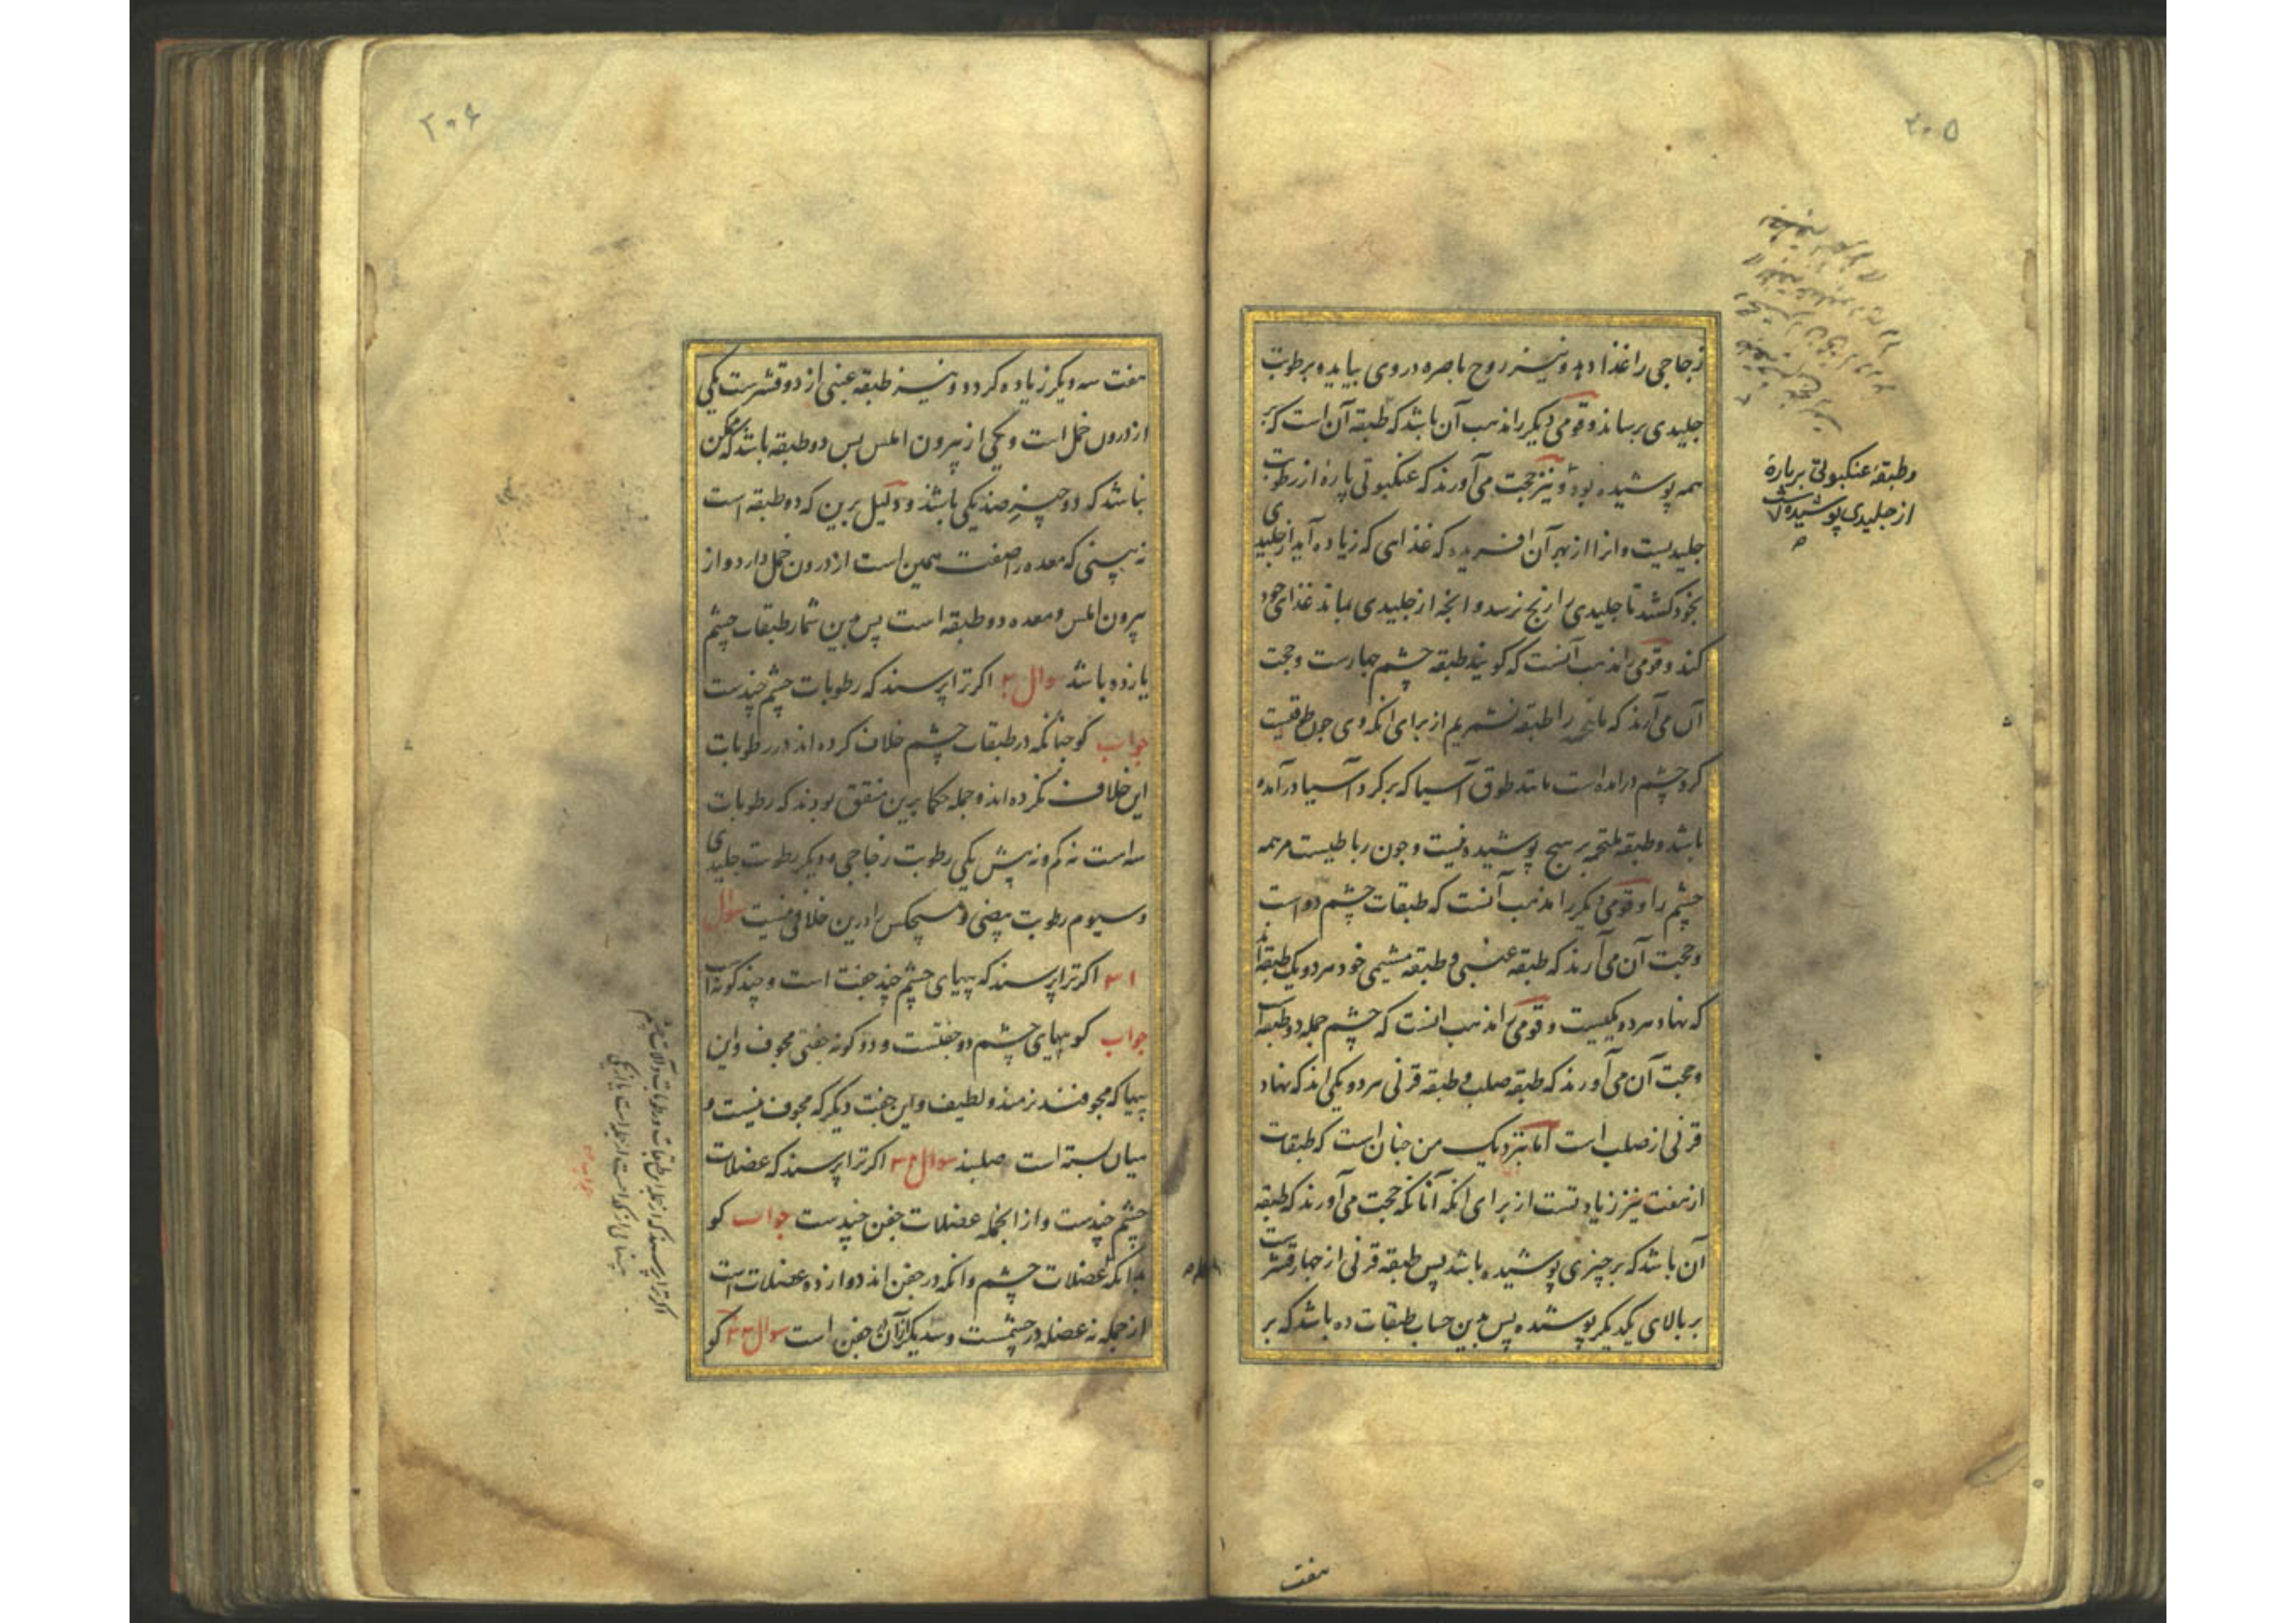 ۲۰۵
زجاجی را غذا دهد و نیز روح باصره در وی بیاید و برطوبت
جلیدی برساند و قومی دیگر را مذهب آن باشد که طبقه آن است که بر
همه پوشیده بود و نیز حجت می آورند که عنکبوتی پارۀ از رطوبت
جلیدیست و انرا از بهر آن افریده که غذای که زیاده آید از جلیدی
بخود کشد تا جلیدی را رنج نرسد و انچه از جلیدی بماند غذای خود
کند و قومی را مذهب آنست که کویند طبقه چشم چهارست و حجت
آن می آرند که ملتحمه را طبقه نشمریم از برای انکه وی چون طوقیست
کرد چشم درامده است مانند طوق آسیا که بر کرد آسیا درآمده
باشد و طبقه ملتحمه بر هیچ پوشیده نیست و چون رباطیست مر همه
چشم را و قومی دیکر را مذهب آنست که طبقات چشم دو است
و حجت آن می آرند که طبقه عنبی و طبقه مشیمی خود هر دو یک طبقه اند
که نهاد هر دو یکیست و قومی را مذهب انست که چشم جمله دو طبقه است
و حجت آن می آورند که طبقه صلب و طبقه قرنی هر دو یکی اند که نهاد
قرنی از صلب است اما بنزدیک من چنان است که طبقات
از هفت نیز زیادتست از برای انکه آنانکه حجت می آورند که طبقه
آن باشد که بر چیزی پوشیده باشد پس طبقه قرنی از چهار قشرست
بر بالای یکدیکر پوشیده پس بدین حساب طبقات ده باشد که بر
هفت
و طبقۀ عنکبوتی بر پارۀ
از جلیدی پوشیده است
۲۰۶
هفت سه دیکر زیاده کردد و نیز طبقه عنبی از دو قشرست یکی
از درون خمل است و یکی از بیرون املس پس دو طبقه باشد که ممکن
نباشد که دو چیز ضد یکی باشد و دلیل برین که دو طبقه است
نه بینی که معده را صفت همین است از درون خمل دارد و از
بیرون املس و معده دو طبقه است پس بدین شمار طبقات چشم
یازده باشد سوال ۳۰ اکر ترا پرسند که رطوبات چشم چندست
جواب کو چنانکه در طبقات چشم خلاف کرده اند در رطوبات
این خلاف نکرده اند و جمله حکما برین متفق بودند که رطوبات
سه است نه کم و نه بیش یکی رطوبت زجاجی و دیکر رطوبت جلیدی
و سیوم رطوبت بیضی و هیچکس را درین خلافی نیست سوال
۳۱ اکر ترا پرسند که پیهای چشم چند جفت است و چند کونه است
جواب کو پیهای چشم دو جفتست و دو کونه جفتی مجوف و این
پیها که مجوفند نرمند و لطیف و این جفت دیکر که مجوف نیست و
میان بسته است صلبند سوال ۳۲ اکر ترا پرسند که عضلات
چشم چندست و از انجمله عضلات جفن چندست جواب کو
بدانکه عضلات چشم و انکه در جفن اند دوازده عضلات است
از جمله نه عضله در چشمست و سه دیکر از آن جفن است سوال ۳۳ کو
اکر ترا پرسند که از جمله طبقات و رطوبات و آلات چشم